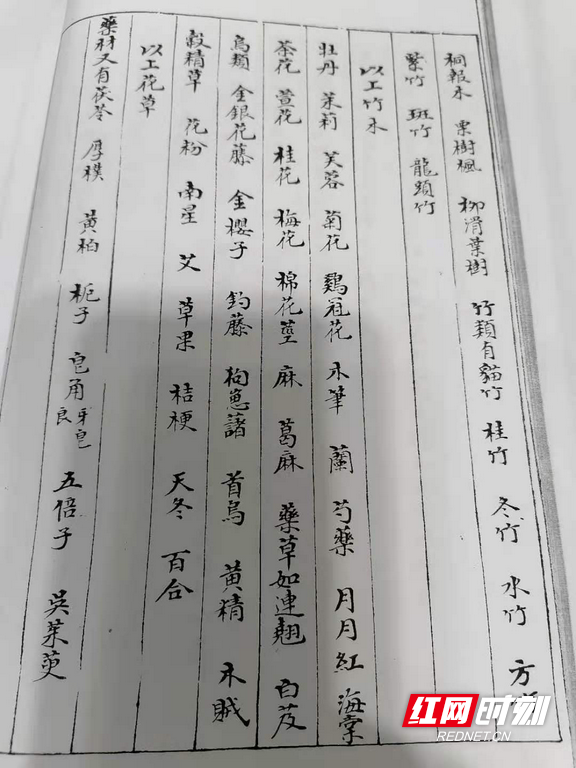 桐報木 栗樹楓 柳滑葉樹 竹類有貓竹 桂竹 冬竹 水竹 方
紫竹 斑竹 龍頭竹
以上竹木
牡丹 茉莉 芙蓉 菊花 鷄冠花 木筆 蘭 芍藥 月月紅 海棠
茶花 萱花 桂花 梅花 棉花 苎 麻 葛麻 藥草如連翹 白芨
烏類 金銀花藤 金櫻子 鈎藤 首烏 黃精 木賊
穀精草 花粉 南星 艾 草果 桔梗 天冬 百合
以上花草
藥材又有茯苓 厚樸 黃柏 栀子 皂角 良牙皂 五倍子 吳茱萸
红网时刻
REDNET.CN